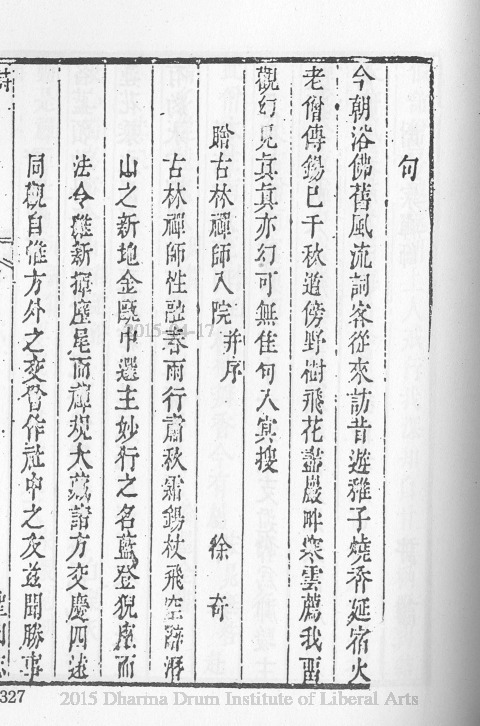 句
今朝浴佛舊風流詞客從來訪昔遊稚子燒香延宿火
老僧傳錫已千秋道傍野樹飛花盡巖畔寒雲薦我畱
觀幻見真真亦幻可無佳句入冥搜
贈古林禪師入院并序 徐奇
古林禪師性融春雨行肅秋霜錫杖飛空
山之新地金甌中選主妙行之名藍登猊座而
法令維新揮麈尾而禪規大諸方交慶四
同觀自惟方外之交曾作社中之友茲聞勝事
327
2015-04-17
2015 Dharma Drum Institute of Liberal Arts